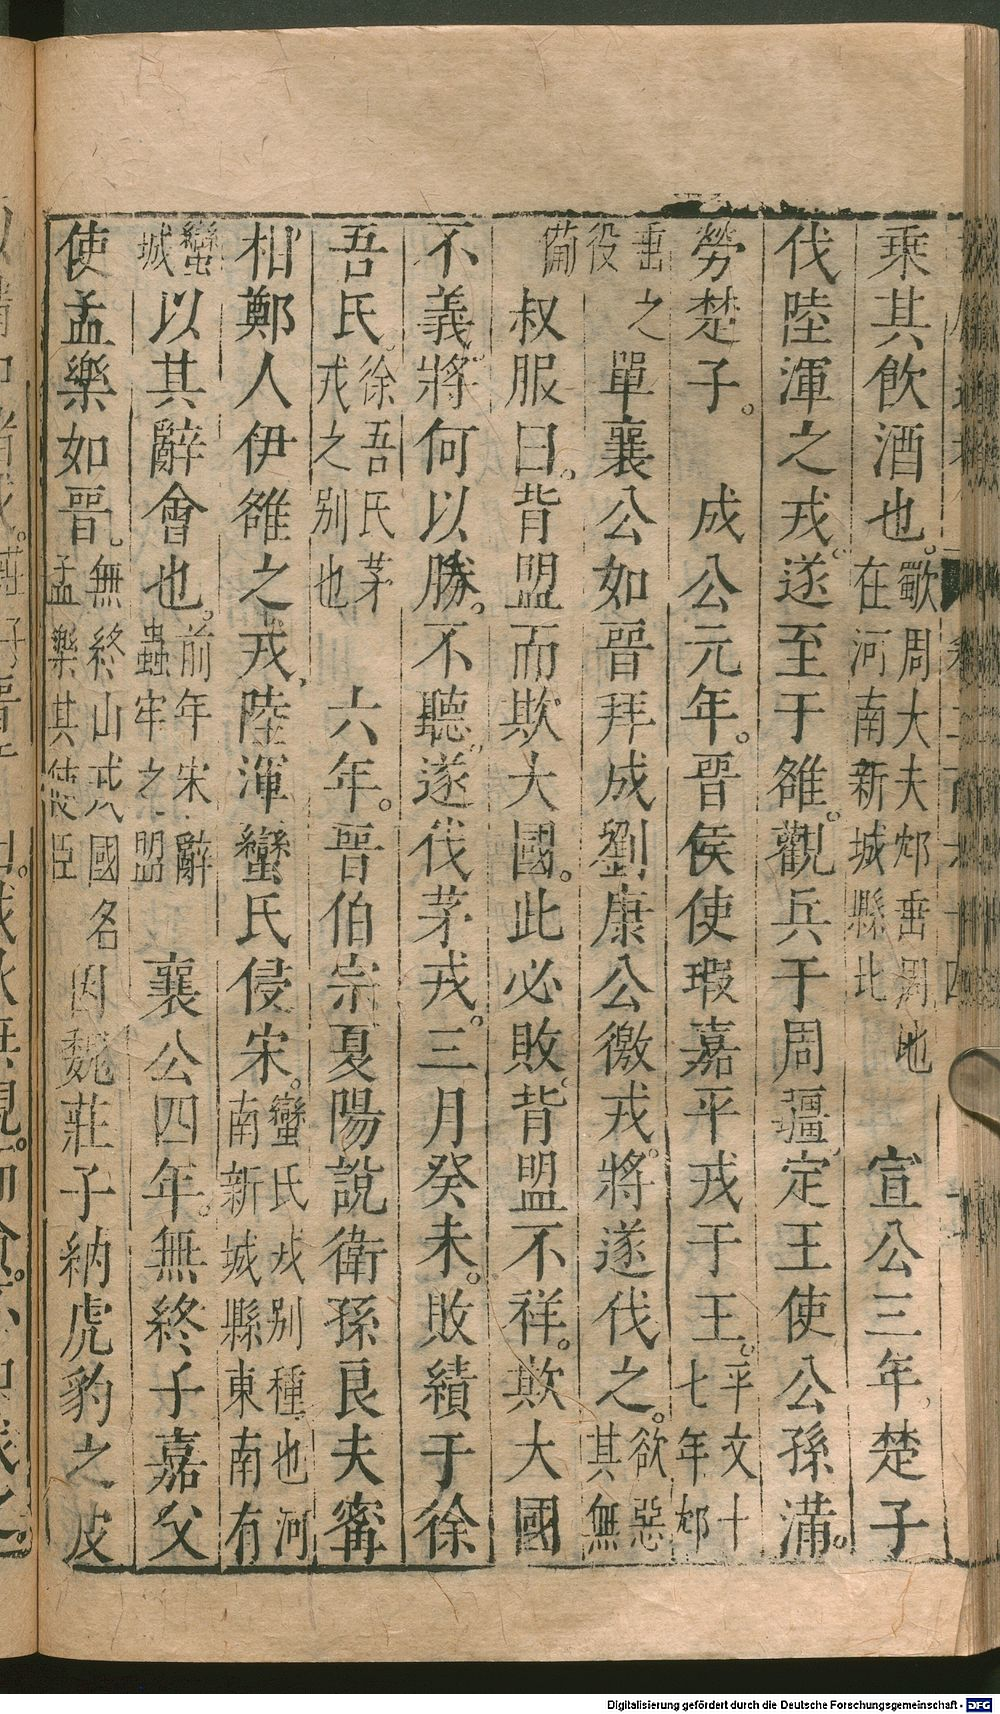 乗其飲酒也。歜周大夫邥垂周地在河南新城縣北　宣公三年楚子
伐陸渾之戎遂至于雒。觀兵于周疆定王使公孫滿。
勞楚子。　成公元年。晉侯使瑕嘉平戎于王。平文十七年邥
垂之役　單襄公如晉拜成劉康公徼戎。將遂伐之。欲惡其無
備　叔服曰。背盟而欺大國。此必敗。背盟不祥。欺大國
不義。將何以勝。不聽。遂伐茅戎。三月癸未。敗績于徐
吾氏。徐吾氏茅戎之别也　六年。晉伯宗夏陽說衛孫良夫甯
相鄭人伊雒之戎陸渾蠻氏侵宋。蠻氏戎别種也河南新城縣東南有
蠻城以其辭會也。前年宋辭蟲牢之盟　襄公四年。無終子嘉父
使孟樂如晉。無終山戎國名孟樂其使臣因魏莊子納虎豹之皮
Digitalisierung gefördert durch die Deutsche Forschungsgemeinschaft - DFG